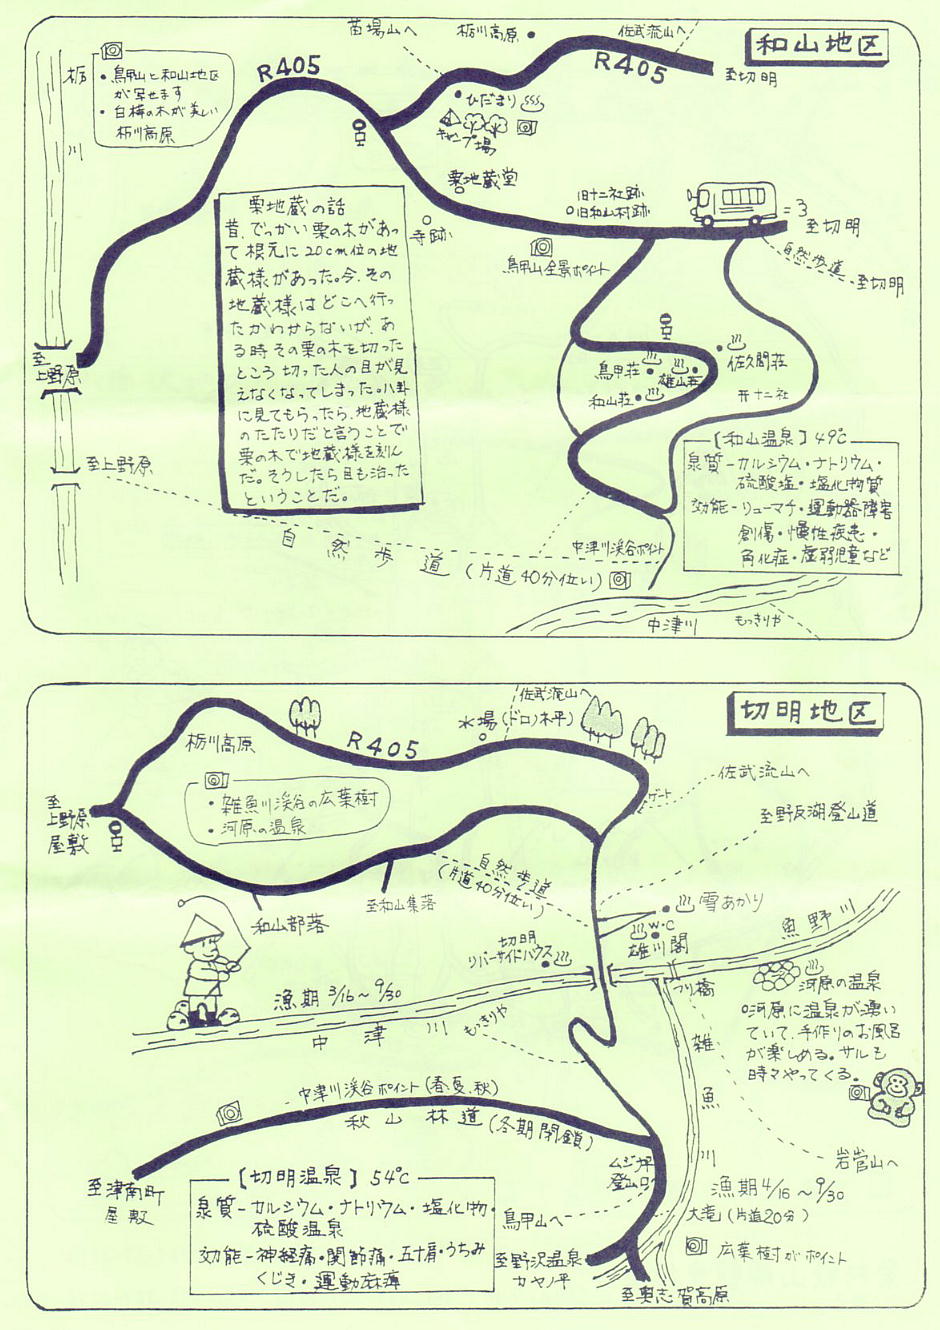 和山地区
苗場山へ
栃川高原
佐武流山へ
R405
R405
至切明
栃
川
・鳥甲山と和山地区
が写せます
・白樺の木が美しい
栃川高原
ひだまり
キャンプ場
栗地蔵堂
寺跡
旧十二社跡
旧和山村跡
至切明
自然歩道
至切明
鳥甲山全景ポイント
栗地蔵の話
昔、でっかい栗の木があっ
て根えに20cm位の地
蔵様があった。今、その
地蔵様はどこへ行っ
たかわからないが、あ
る時その栗の木を切った
ところ切った人の目が見
えなくなってしまった。八卦
に見てもらったら、地蔵様
のたたりだと言うことで
栗の木で地蔵様を刻ん
だ。そうしたら目も治った
ということだ。
至
上野原
至上野原
鳥甲荘
雄山荘
和山荘
佐久間荘
十二社
【和山温泉】49℃
泉質-カルシウム・ナトリウム・
硫酸塩・塩化物質
効能-リューマチ・運動器障害
創傷・慢性疾患・
角化症・虚弱児童など
自然歩道(片道40分位い)
中津川渓谷ポイント
中津川
もっきりや
切明地区
佐武流山へ
水場(ドロノ木平)
栃川高原
R405
・雑魚川渓谷の広葉樹
・河原の温泉
至
上野原
屋敷
ゲート
佐武流山へ
至野反湖登山道
自然歩道
(片道40分位い)
至和山集落
和山部落
雪あかり
W・C
雄川閣
切明
リバーサイドハウス
魚野川
つり橋
河原の温泉
○河原に温泉が湧い
ていて、手作りのお風呂
が楽しめる。サルも
時々やってくる。
漁期3/16～9/30
中津川
もっきりや
雑魚川
中津川渓谷ポイント(春、夏、秋)
秋山林道(冬期閉鎖)
至津南町
屋敷
ムジナ坪
登山口
鳥甲山へ
岩菅山へ
漁期4/16～9/30
大滝(片道20分)
広葉樹がポイント
【切明温泉】54℃
泉質-カルシウム・ナトリウム・塩化物・
硫酸温泉
効能-神経痛・関節痛・五十肩・うちみ
くじき・運動麻痺
至野沢温泉
カヤノ平
至奥志賀高原